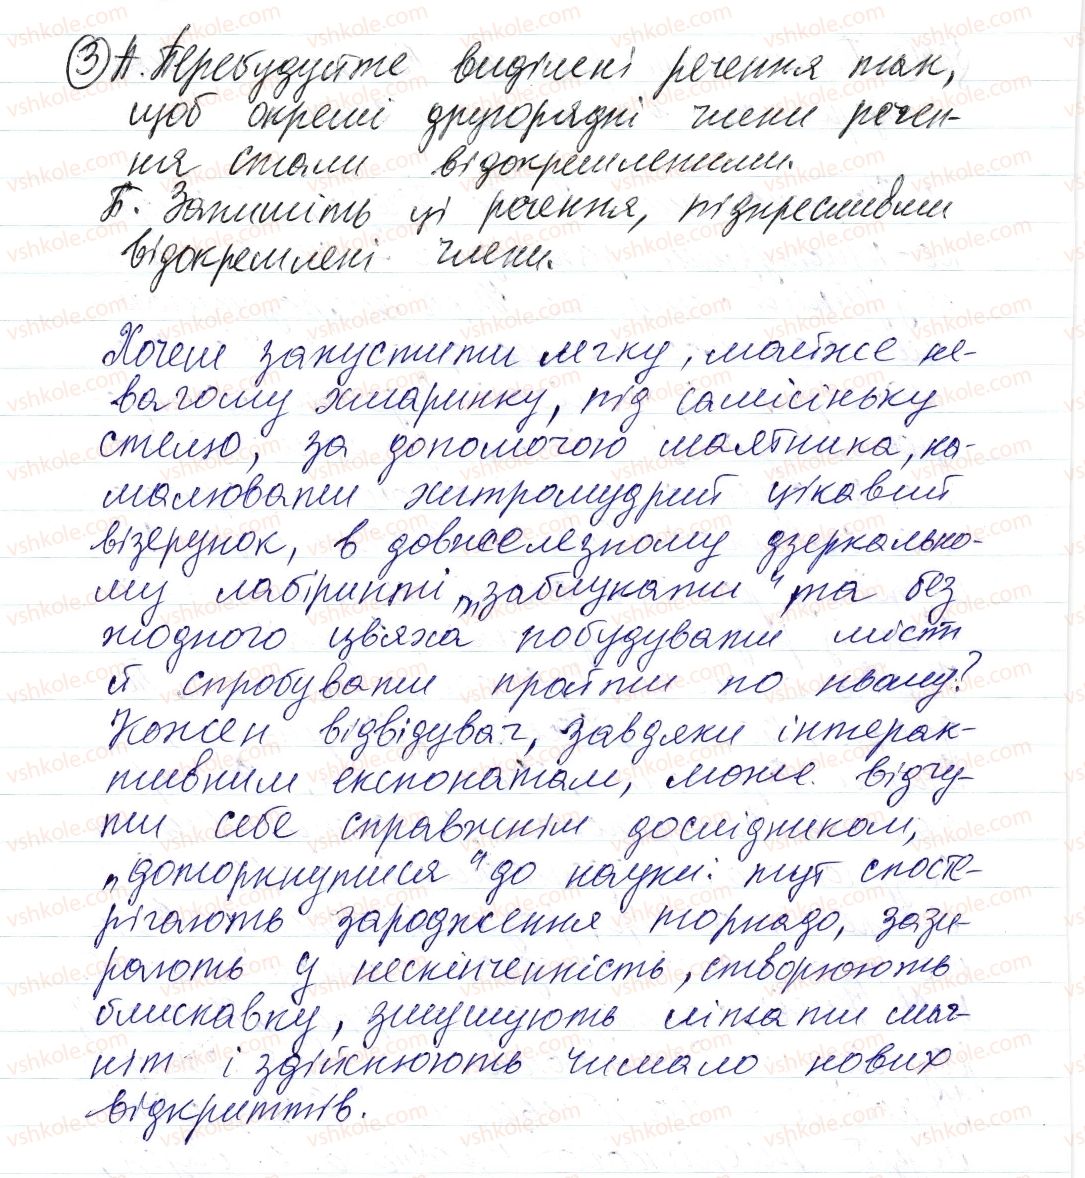 ③ А. Перебудуйте виділені речення так,
щоб окремі другорядні члени речен-
ня стали відокремленими.
Б. Запишіть ці речення, підкресливши
відокремлені члени.
Хочеш запустити легку, майже не-
вагому хмаринку, під самісіньку
стелю, за допомогою маятника, на-
малювати хитромудрий цікавий
візерунок, в довжелезному дзеркально-
му лабіринті „заблукати“ та без
жодного цвяха побудувати міст
й спробувати пройти по ньому?
Кожен відвідувач, завдяки інтерак-
тивним експонатам, може відчу-
ти себе справжнім дослідником,
„доторкнутися“ до науки: тут спосте-
рігають зародження торнадо, зази-
рають у нескінченність, створюють
блискавку, змушують літати маг-
ніт і здійснюють чимало нових
відкриттів.